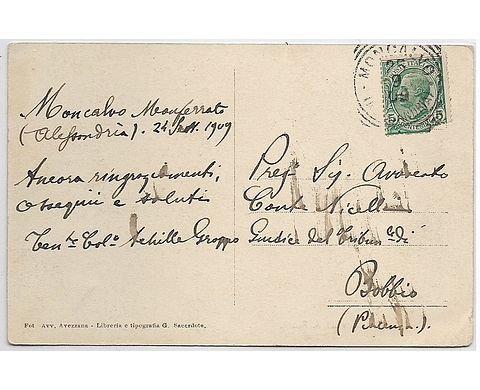 MONCALVO
5 5
Moncalvo Monferrato
(Alessandria). 24 Sett. 1909
Ancora ringraziamenti,
ossequii e saluti
Ten.te Col.o Achille Groppo
Preg. Sig. Avvocato
Conte Nicelli
Giudice del Tribun. di
Bobbio
(Piacenza).
Fot. Avv. Avezzana - Libreria e tipografia G. Sacerdote,